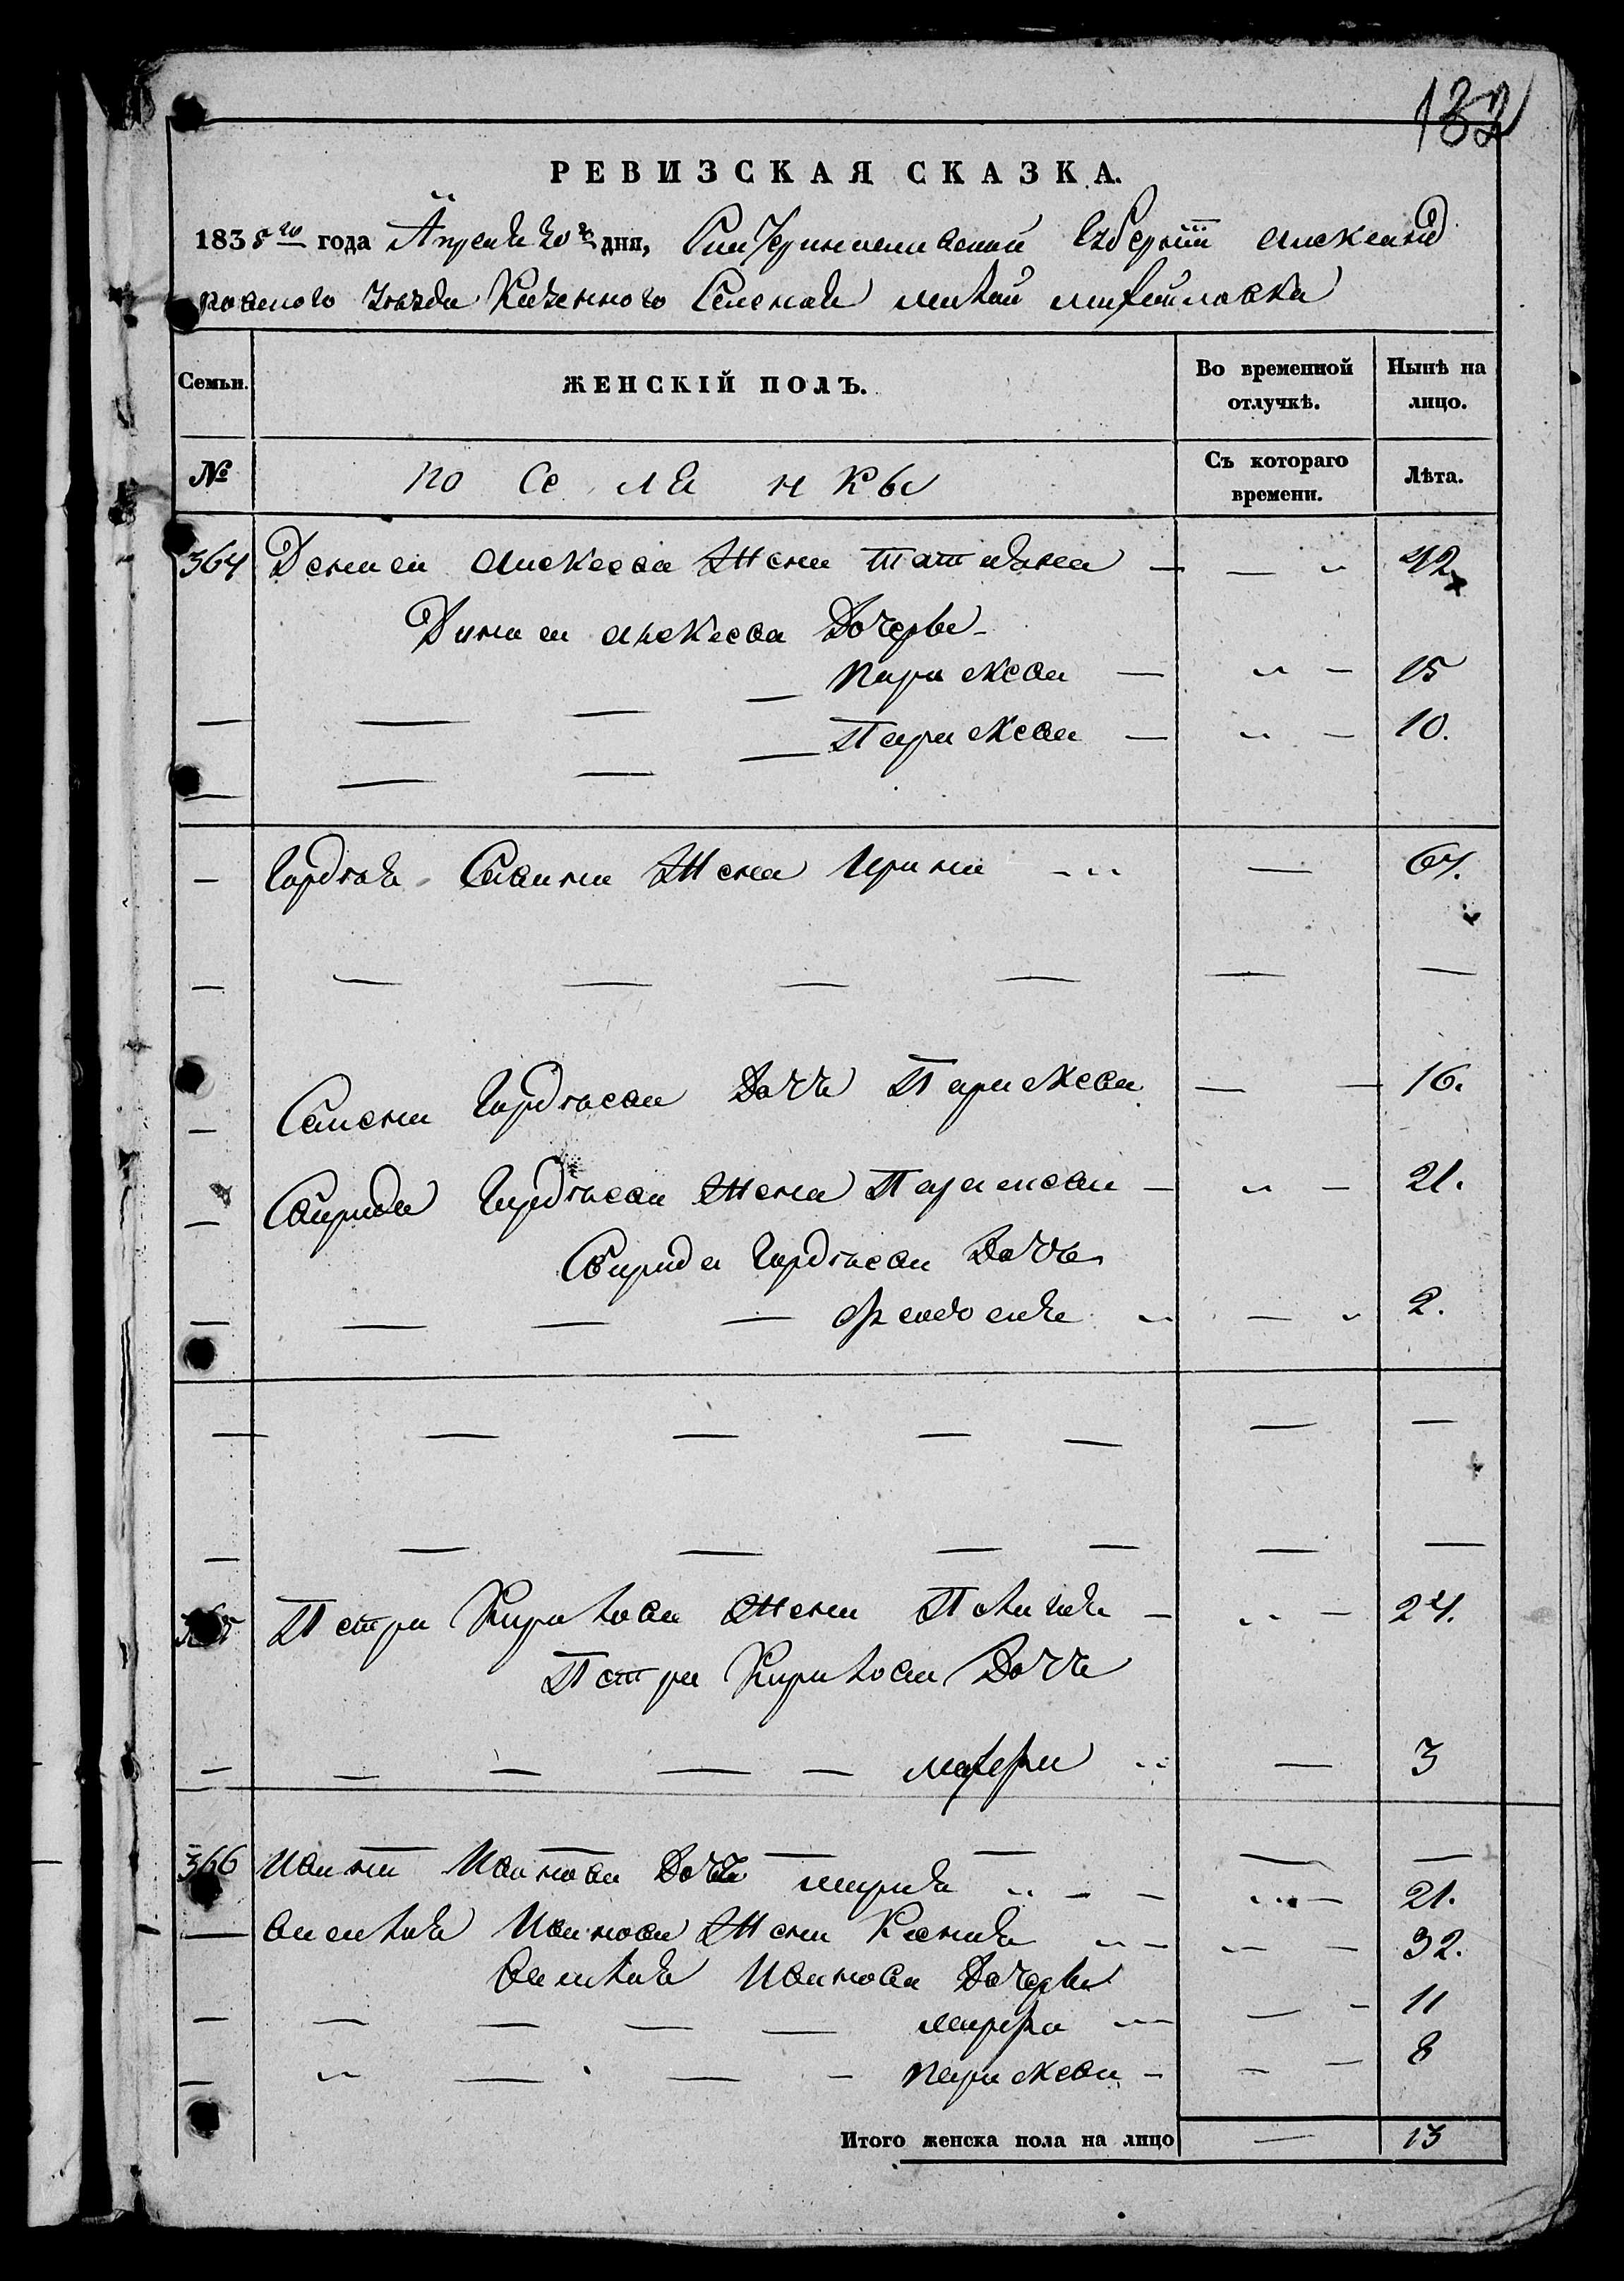 132
РЕВИЗСКАЯ СКАЗКА.
1835го года Апреля 20го дня, Екатеринославской Губернiи Александ
ровского Уезда Казенного Селения малой михайловки
Семьи.
ЖЕНСКІЙ ПОЛЪ.
Во временной отлучкѣ.
Нынѣ на лицо.
№
по се ля н кы
Съ котораго времени.
Лѣта.
364 Дениса Алексеева Жена Татияна — — 〃 42
Дениса алексеева Дочери
параскева — 〃 — 15
— — — — Параскева — 〃 — 10.
— Гордея Савина Жена Ирина 〃 — 67.
— — — — — — —
— Семена Гордеева Дочь Параскева — — 16.
— Свирида Гордеева Жена Параскева — 〃 — 21.
Свирида Гордеева Дочь
— — — — феодосия 〃 — 〃 2.
— — — — — — —
— — — — — — —
365 Петра Кирилова Жена Пелагия — 〃 — 24.
Петра Кирилова Дочь
— — — — — 〃 — 3
366 Ивана Иванова Дочь мария 〃 — — 〃 — 21.
— Иванова Жена Ксения 〃 — 〃 — 32.
Иванова Дочери
— — — — — марфа 〃 — — 11
— 〃 — — — параскева — — — 8
Итого женска пола на лицо — 13